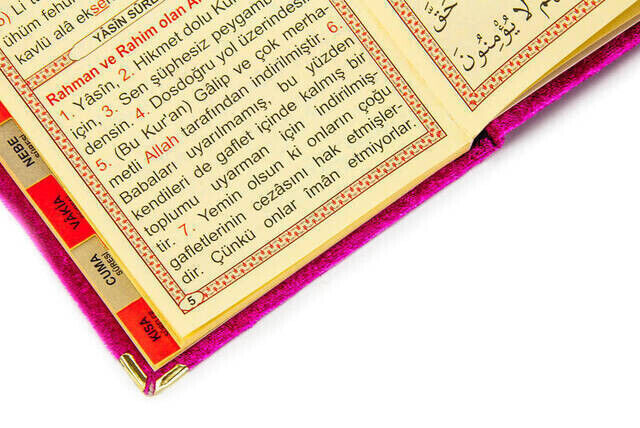 kavlü alâ ek
YÂSİN SÛR
Rahman ve Rahim olan A
1. Yâsîn. 2. Hikmet dolu Kur
için, 3. Sen şüphesiz peygam
densin. 4. Dosdoğru yol üzerindesi
5. (Bu Kur'an) Gâlip ve çok merha-
metli Allah tarafından indirilmiştir. 6.
Babaları uyarılmamış, bu yüzden
kendileri de gaflet içinde kalmış bir
toplumu uyarman için indirilmiş-
tir. 7. Yemin olsun ki onların çoğu
gafletlerinin cezasını hak etmişler-
dir. Çünkü onlar îmân etmiyorlar.
5
لَا يُؤْمِنُونَ
NEBE
VÂKIA
CUMA
SÛRESİ
KISA